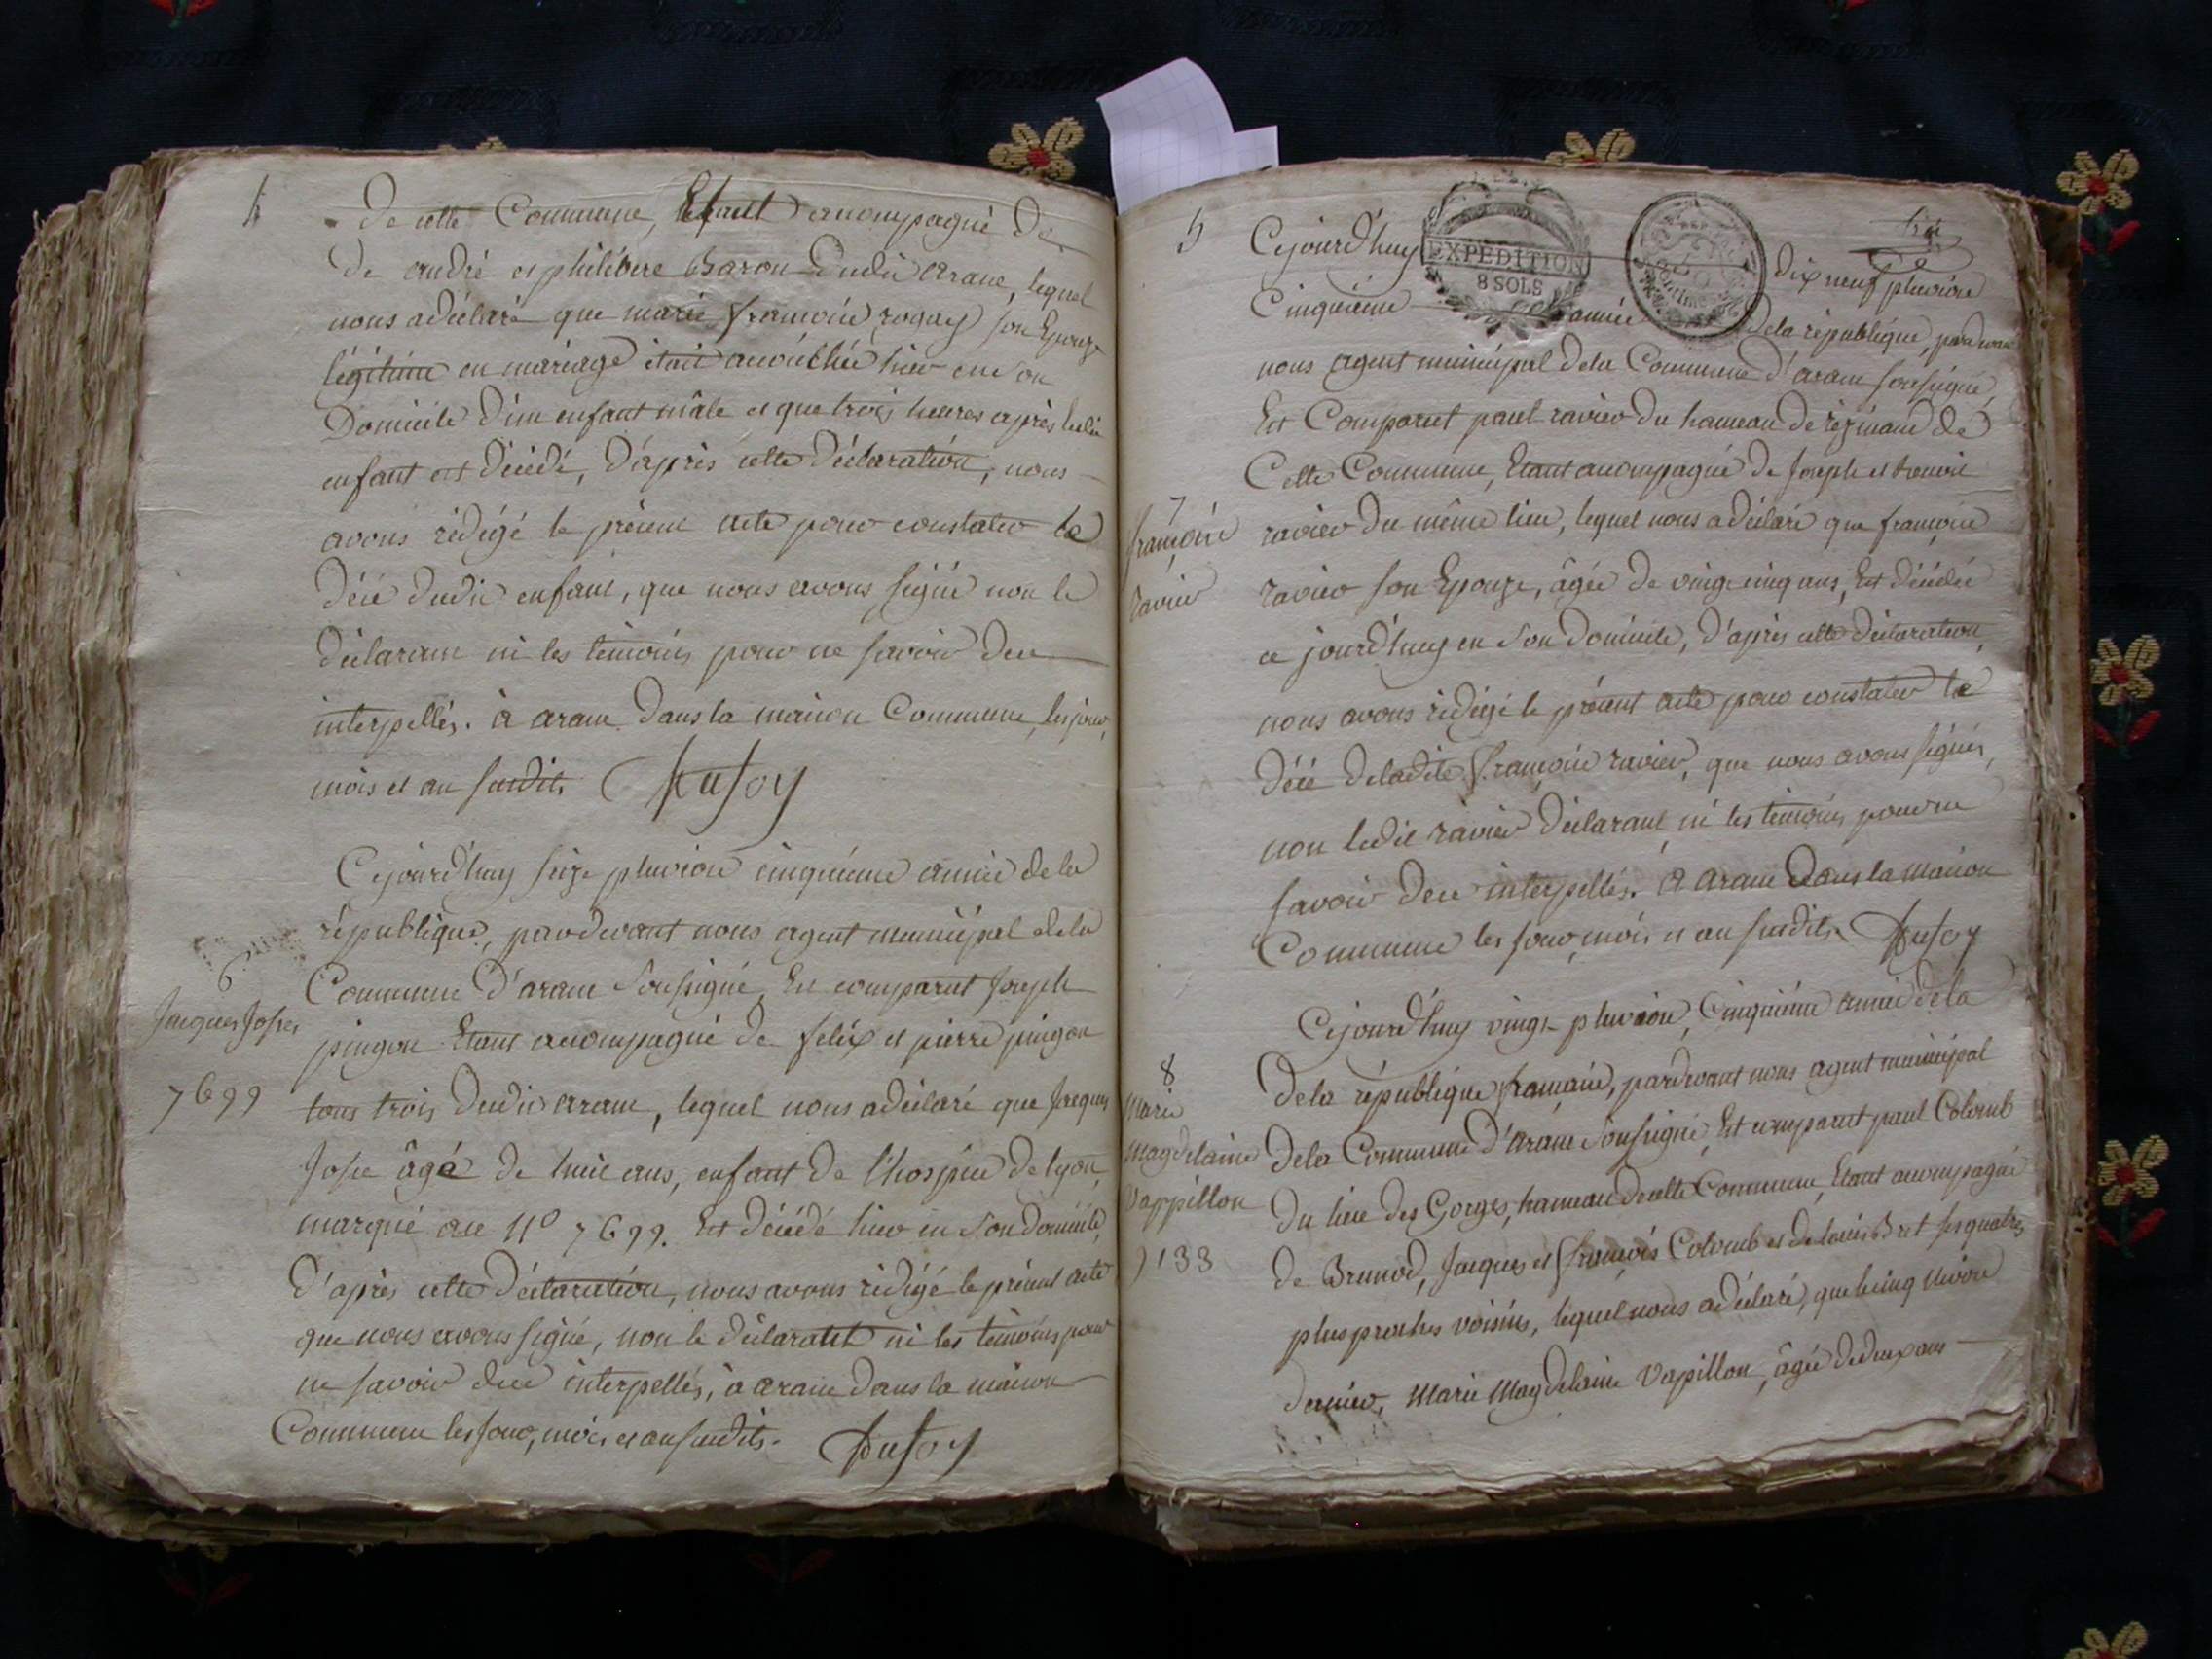 4
de cette Commune, Etant accompagné de
de andré et philibere Baron dudit arane, lequel
nous a déclaré que marie françoise rogay son Epouze
légitime en mariage était accouchée hier en son
Domicile d'un enfant mâle et que trois heures après ledit
enfant est décédé, d'après cette déclaration, nous
avons rédigé le présent acte pour constater le
décé dudit enfant, que nous avons signé non le
déclarant ni les témoins pour ne savoir dece
interpellés. à arane dans la maison Commune, les jour,
mois et an susdits
Cejourd'huy seize pluviose cinquième année de la
république, pardevant nous agent municipal de la
6
Commune d'arane soussigné, Est comparut Joseph
Jacques Josse
pingon Etant accompagné de felix et pierre pingon
7699
tous trois dudit arane, lequel nous a déclaré que Jacques
Josse âgé de huit ans, enfant de l'hospice de lyon,
marqué au N° 7699. Est décédé hier en son domicile,
D'après cette déclaration, nous avons rédigé le présent acte
que nous avons signé, non le déclarant ni les témoins pour
ne savoir dece interpellés, à arane dans la maison
Commune les jour, mois et an susdits.
5
Cejourd'huy dix neuf pluviose
EXPÉDITION
8 SOLS
Cinquième année de la république, pardevant
nous agent municipal de la Commune d'arane soussigné,
Est Comparut paul ravier du hameau de rézinand de
Cette Commune, Etant accompagné de Joseph et
7
françoise
ravier du même lieu, lequel nous a déclaré que françoise
ravier
ravier son Epouze, âgée de vingt cinq ans, Est décédée
ce jourd'huy en son domicile, d'après cette déclaration,
nous avons rédigé le présent acte pour constater le
décé deladite françoise ravier, que nous avons signés,
non ledit ravier déclarant ni les témoins pour ne
savoir dece interpellés. à arane dans la maison
Commune les jour, mois et an susdits
Cejourd'huy vingt pluviose, Cinquième année de la
8
de la république française, pardevant nous agent municipal
Marie
Magdelaine
de la Commune d'arane soussigné, Est comparut paul Colomb
vappillon
du lieu des Gorges, hameau de cette Commune, Etant accompagné
9133
de Brunod, Jacques et françois Colomb et de louis Bret ses quatres
plus proches voisins, lequel nous a déclaré, que le cinq Nivose
dernier, Marie Magdelaine Vapillon, âgée de deux ans